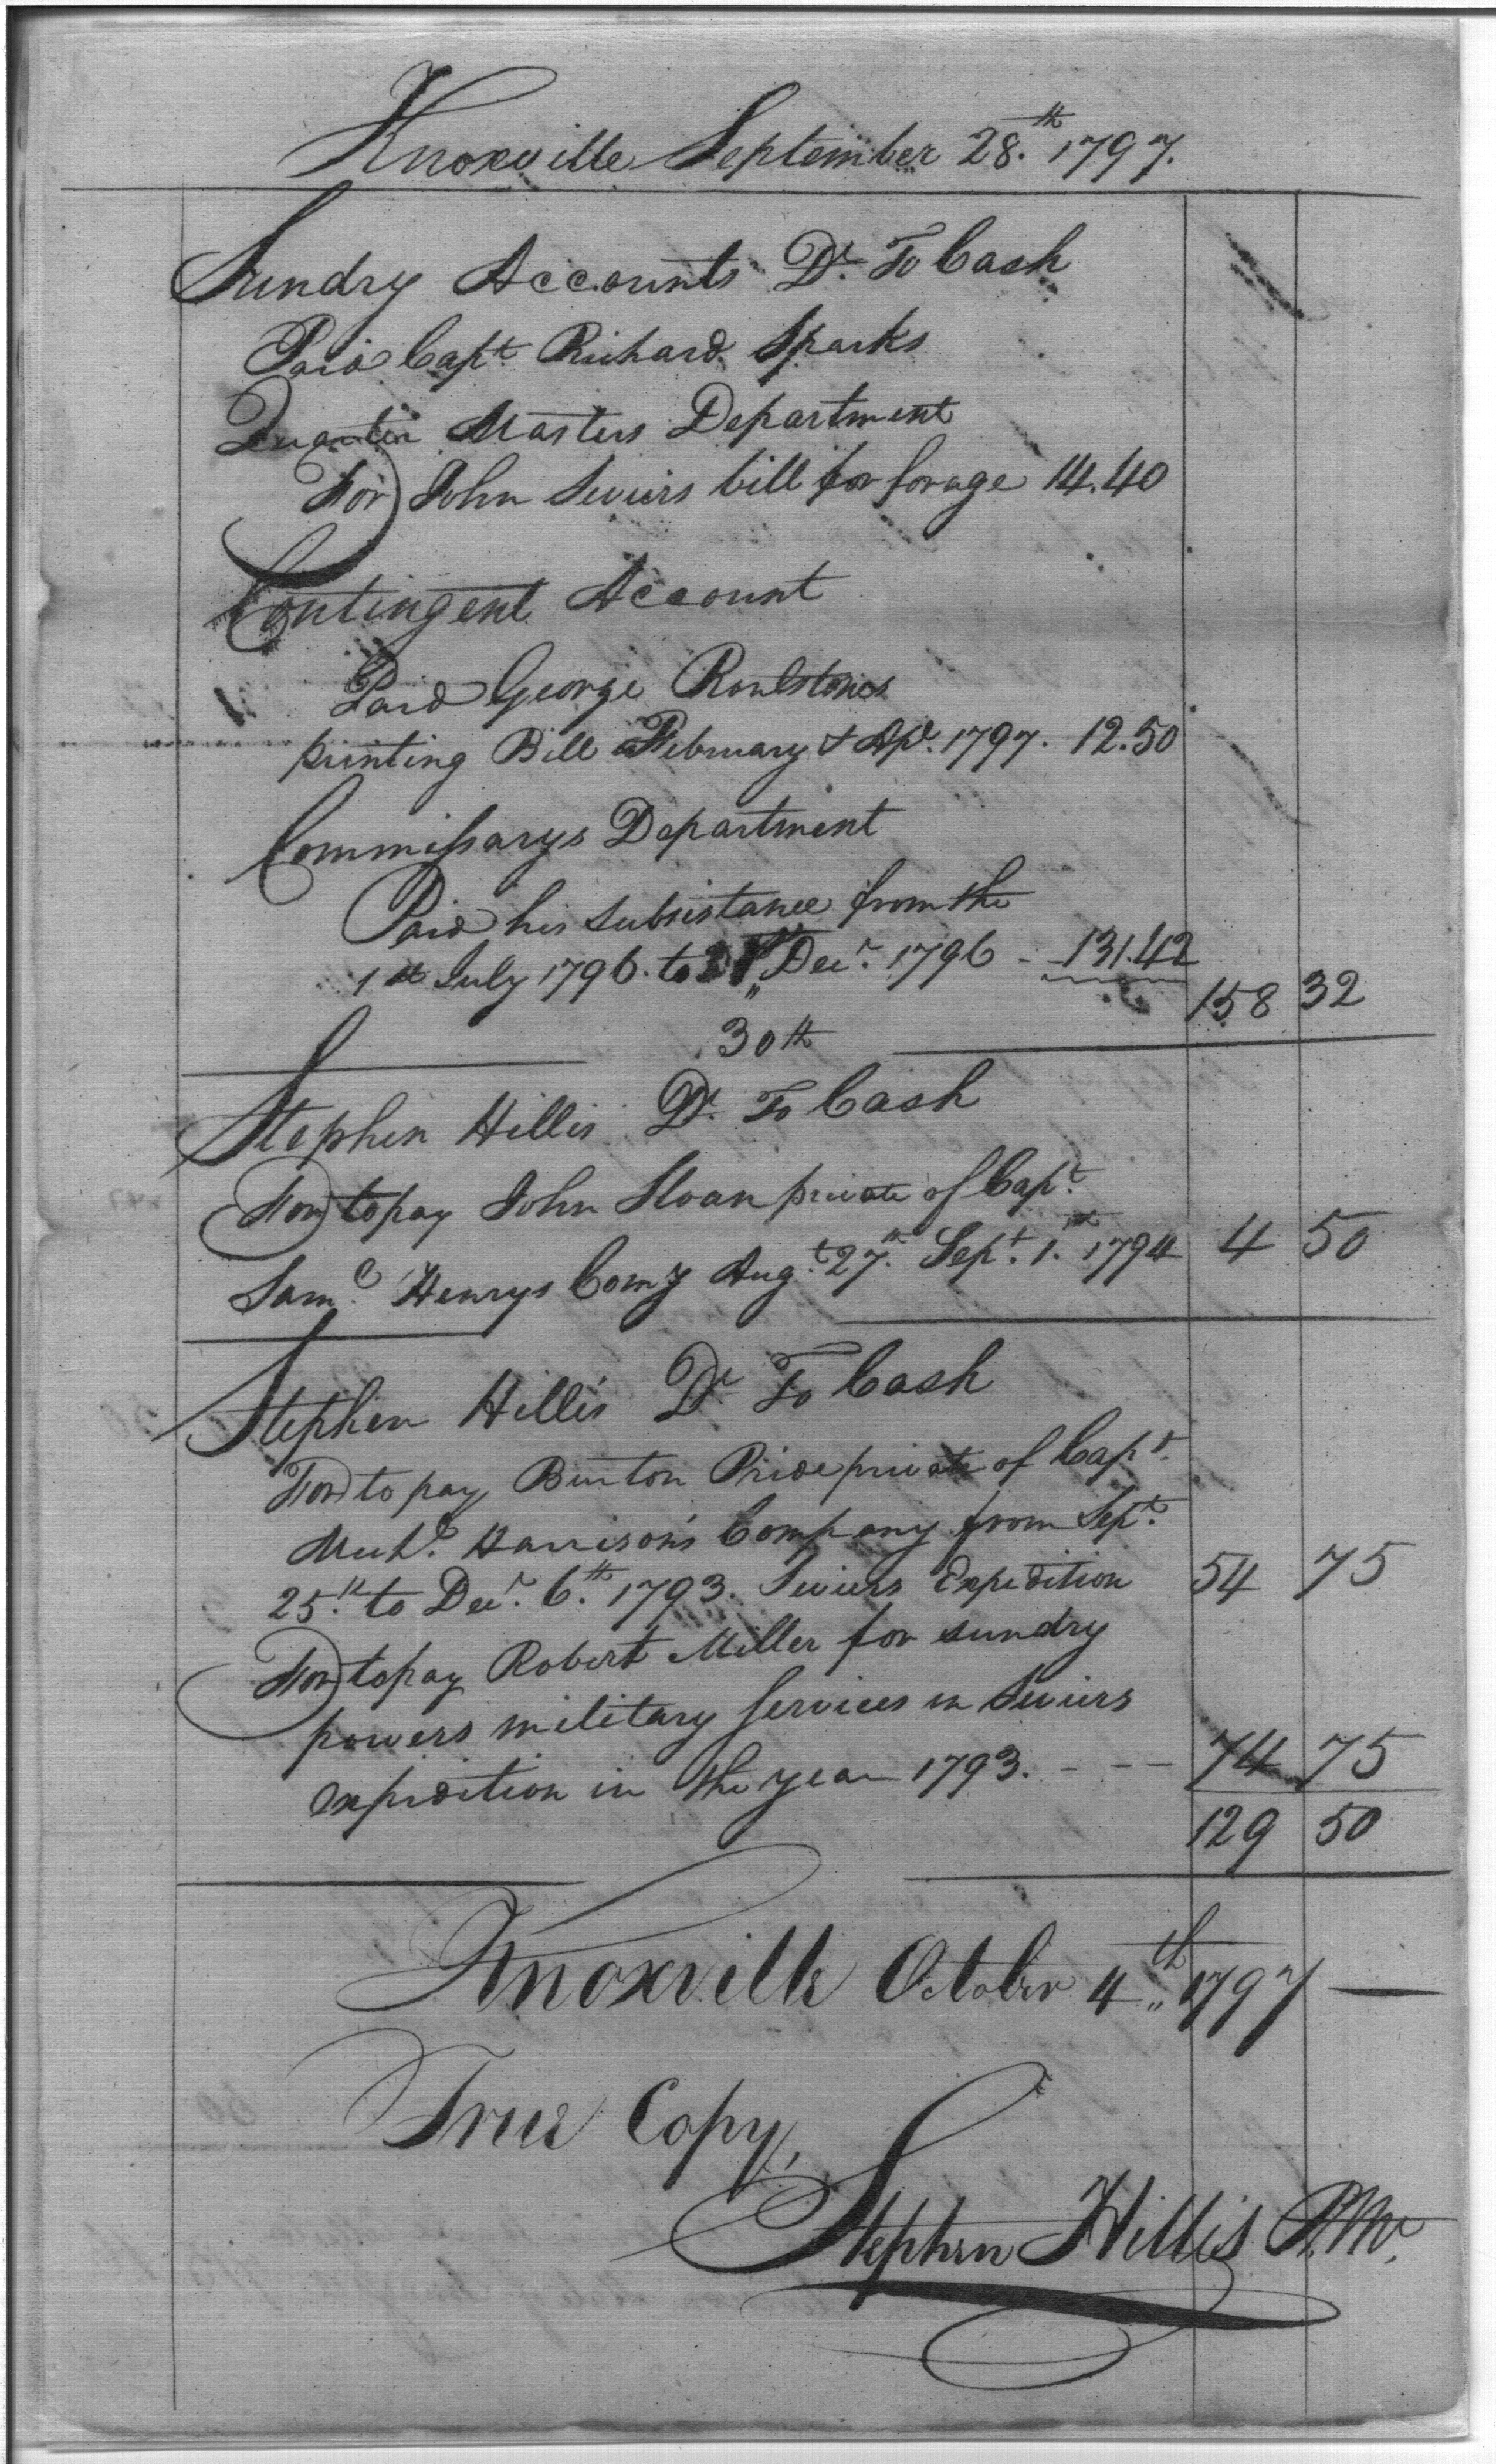 Knoxville September 28.th 1797.
Sundry Accounts Dr. To Cash
Paid Capt. Richard Sparks
Quarter Masters Department
For John Seviers bill for forage 14.40
Contingent Account
Paid George Roulstones
printing Bill February & Apl. 1797. 12.50
Commissarys Department
Paid his subsistance from the
1st July 1796. to 31st Decr. 1796 - 131.42
158 32
30th
Stephen Hillis Dr. To Cash
For to pay John Sloan private of Capt.
Saml. Henrys Comy Augt. 27th. Sept. 1st. 1794 4 50
Stephen Hillis Dr. To Cash
For to pay Burton Pride private of Capt.
Michl. Harrison's Company from Sept.
25.th to Decr. 6.th 1793. Seviers Expedition 54 75
For to pay Robert Miller for sundry
powers military services in Seviers
expedition in the year 1793. - -- 74 75
129 50
Knoxville October 4th 1797 —
True Copy,
Stephen Hillis P.Mr.